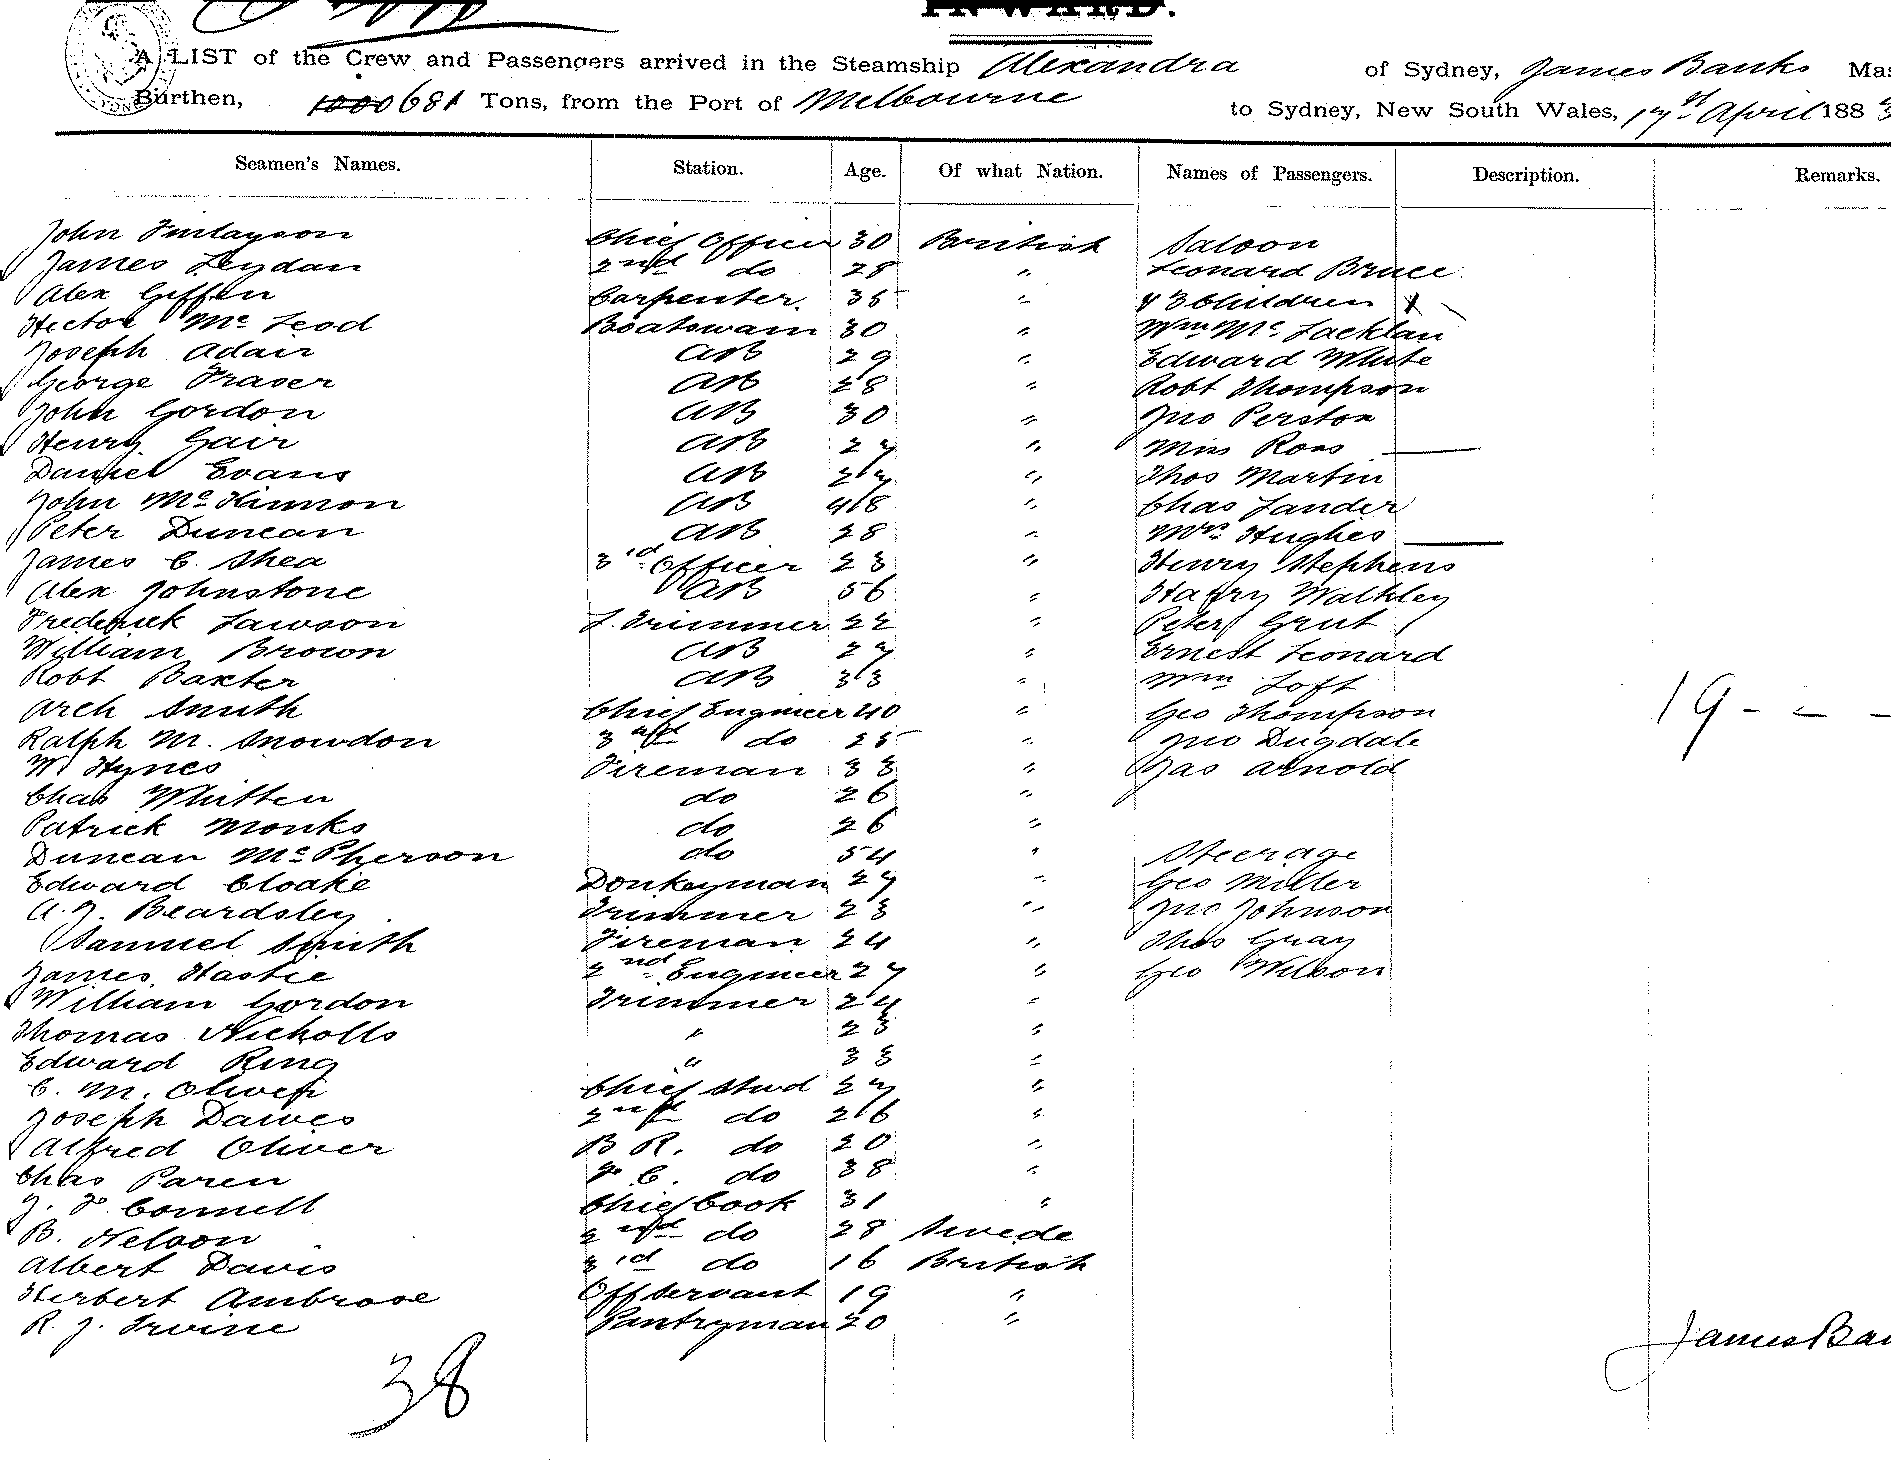 INWARD.
A LIST of the Crew and Passengers arrived in the Steamship Alexandra of Sydney, James Banks Mas
Burthen, 1000 681 Tons, from the Port of Melbourne to Sydney, New South Wales, 17st April 1883
Seamen's Names. Station. Age. Of what Nation. Names of Passengers. Description. Remarks.
John Finlayson Chief Officer 30 British Saloon
James Leydan 2nd do 28 " Leonard Bruce
Alex Giffen Carpenter. 35 " & 3 Children
Hector Mc Leod Boatswain 30 " Wm Mc Lacklan
Joseph Adair AB 29 " Edward White
George Fraser AB 28 " Robt Thompson
John Gordon AB 30 " Jno Perston
Henry Gair AB 27 " Miss Ross
Daniel Evans AB 27 " Thos Martin
John McKinnon AB 48 " Chas Lander
Peter Duncan AB 28 " Mrs Hughes
James C. Shea 3rd Officer 23 " Henry Stephens
Alex Johnstone AB 56 " Harry Walkley
Frederick Lawson L. Trimmer 22 " Peter Grut
William Brown AB 27 " Ernest Leonard
Robt Baxter AB 33 " Wm Loft
Arch Smith Chief Engineer 40 " Geo Thompson 19 - - -
Ralph M. Snowdon 3rd do 25 " Jno Dugdale
W. Hynes Fireman 33 " Jas Arnold
Chas Whitten do 26 "
Patrick Monks do 26 "
Duncan McPherson do 54 " Steerage
Edward Cloake Donkeyman 27 " Geo Miller
A. J. Beardsley Trimmer 23 " Jno Johnson
Samuel Smith Fireman 24 " Thos Gray
James Hastie 2nd Engineer 27 " Geo Wilson
William Gordon Trimmer 24 "
Thomas Nicholls " 23 "
Edward Ring " 33 "
C. M. Oliver Chief Stwd 27 "
Joseph Dawes 2nd do 26 "
Alfred Oliver B R. do 20 "
Chas Paren F. C. do 38 "
J. F. Connell Chief Cook 31 "
B. Nelson 2nd do 28 Swede
Albert Davis 3rd do 16 British
Herbert Ambrose Off Servant 19 "
R. J. Irvine Pantryman 20 "
James Ban
38